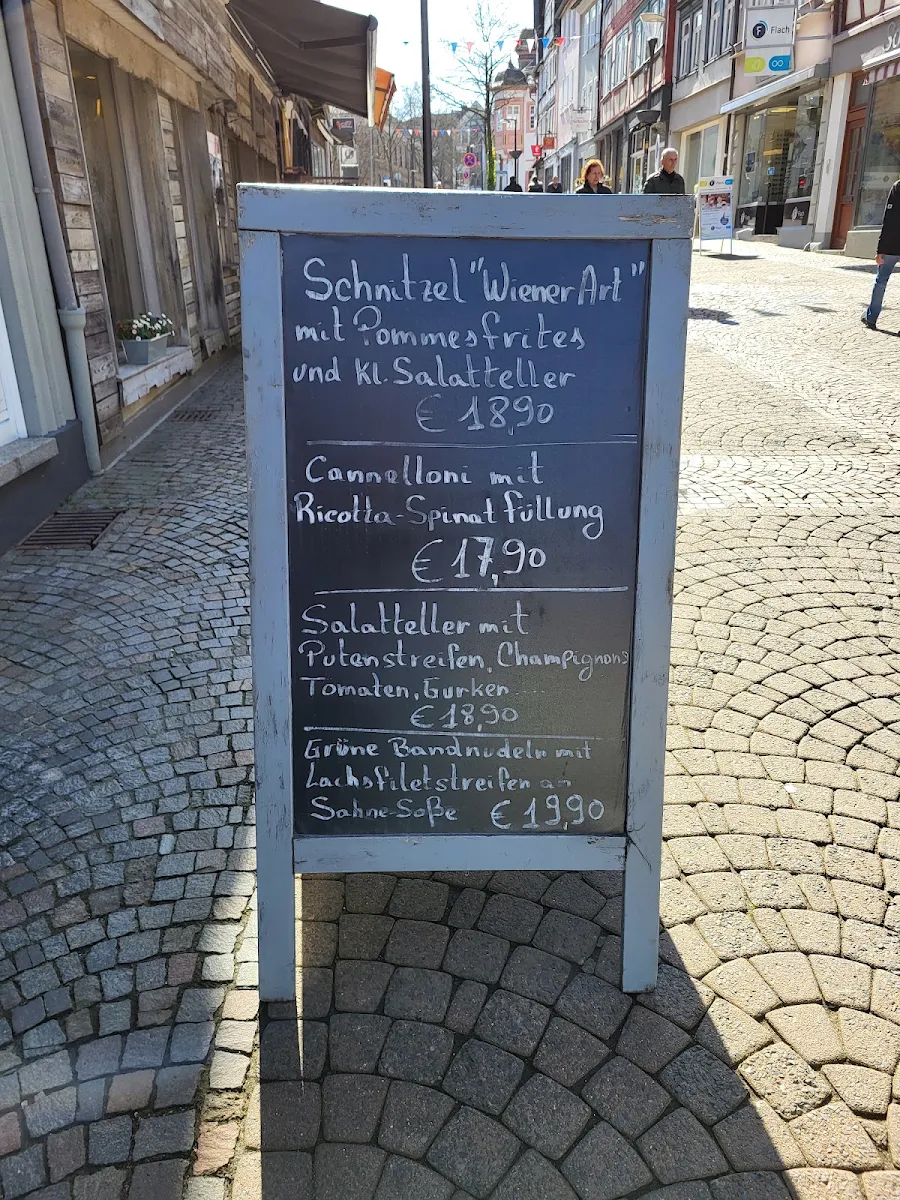 Schnitzel "Wiener Art"
mit Pommesfrites
und kl. Salatteller
€ 18,90
Cannelloni mit
Ricotta-Spinat füllung
€ 17,90
Salatteller mit
Putenstreifen, Champignons
Tomaten, Gurken....
€ 18,90
Grüne Bandnudeln mit
Lachsfiletstreifen an
Sahne-Soße € 19,90
F Flach